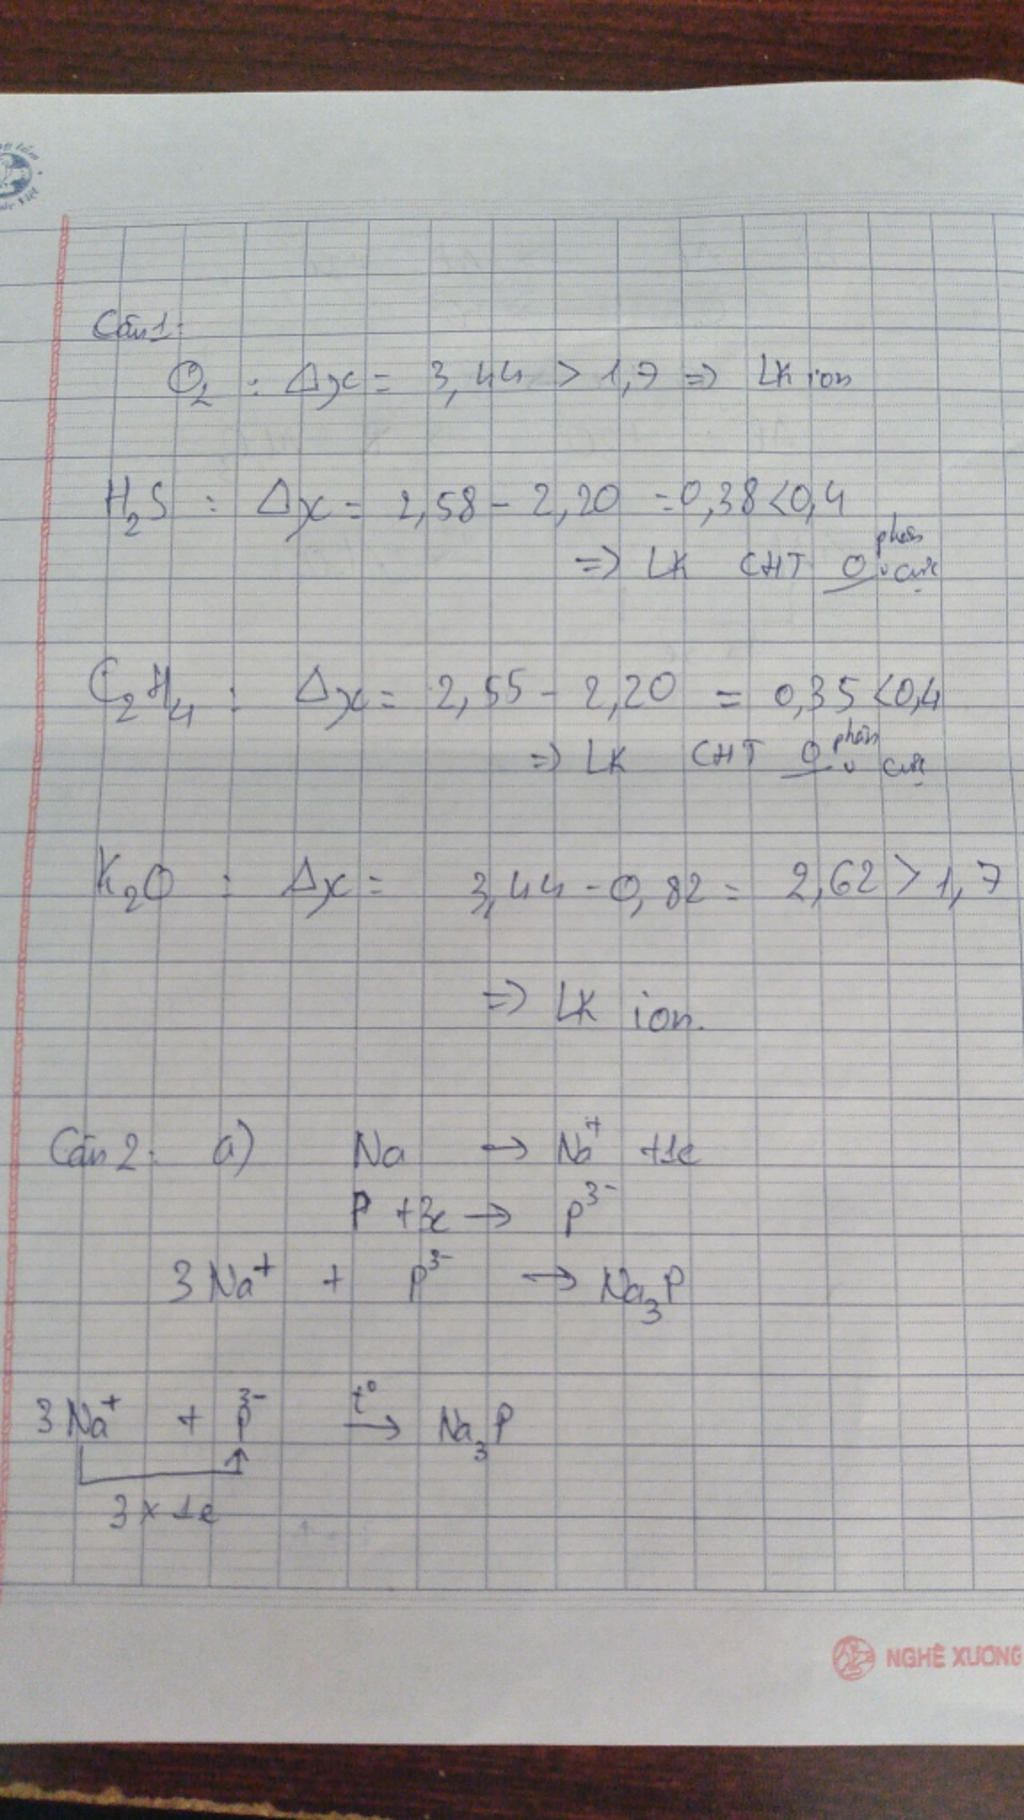 Câu 1:
O₂ : Δχ = 3,44 > 1,7 => LK ion
H₂S : Δχ = 2,58 - 2,20 = 0,38 < 0,4
=> LK CHT O phân cực
C₂H₄ : Δχ = 2,55 - 2,20 = 0,35 < 0,4
=> LK CHT O phân cực
K₂O : Δχ = 3,44 - 0,82 = 2,62 > 1,7
=> LK ion.
Câu 2: a) Na → Na⁺ + 1e
P + 3e → P³⁻
3Na⁺ + P³⁻ → Na₃P
3Na⁺ + P³⁻ t° → Na₃P
3 x 1e
NGHÊ XUONG